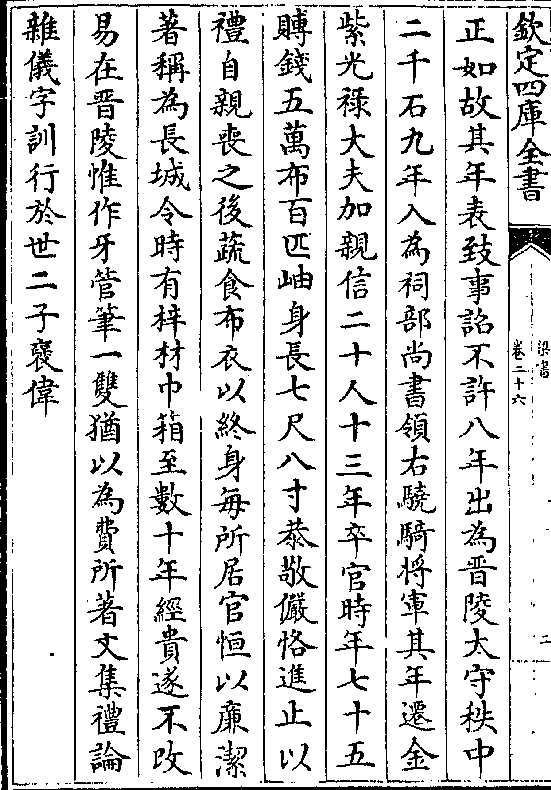 欽定四庫全書
梁書
卷二十六
二
正如故其年表致事詔不許八年出為晋陵太守秩中
二千石九年入為祠部尚書領右驍騎將軍其年遷金
紫光祿大夫加親信二十人十三年卒官時年七十五
賻錢五萬布百匹岫身長七尺八寸恭敬儼恪進止以
禮自親喪之後蔬食布衣以終身每所居官恒以廉潔
著稱為長城令時有梓材巾箱至數十年經貴遂不改
易在晋陵惟作牙管筆一雙猶以為費所著文集禮論
雜儀字訓行於世二子褒偉